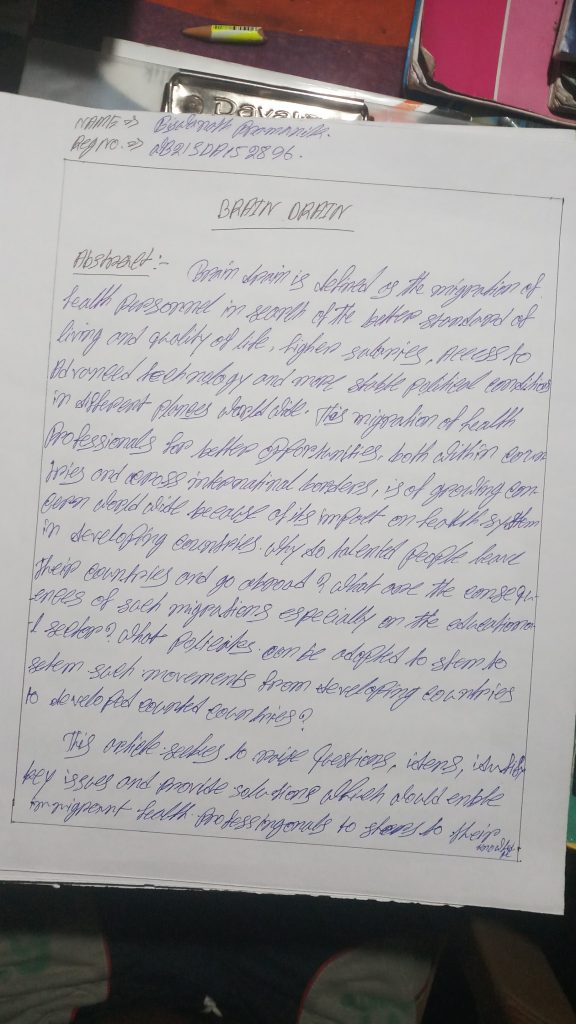 Davar
NAME ⇒
Reg No. ⇒
BRAIN DRAIN
Abstract :- Brain drain is defined as the migration of
health personnel in search of the better standard of
living and quality of life, higher salaries, access to
advanced technology and more stable political conditions
in different planges world wide. This migration of health
professionals for better opportunities, both within coun-
tries and across international borders, is of growing con-
cern world wide because of its impact on health system
in developing countries. why do talented people leave
their countries and go abroad? what are the consequ-
ences of such migrations especially on the educationa-
l sector? what policies can be adopted to stem to
setem such movements from developing countries
to developed counted countries?
This article seekes to raise questions, idens, identify
key issues and provide solutions which would enble
immigrant health professingonals to to their